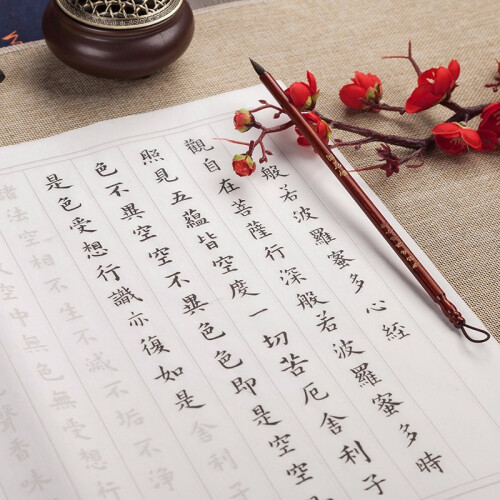 般若波羅蜜多心經
觀自在菩薩行深般若波羅蜜多時
照見五蘊皆空度一切苦厄舍利子
色不異空空不異色色即是空空
是色受想行識亦復如是舍利
諸法空相不生不滅不垢不淨
空中無色無受想行
聲香味